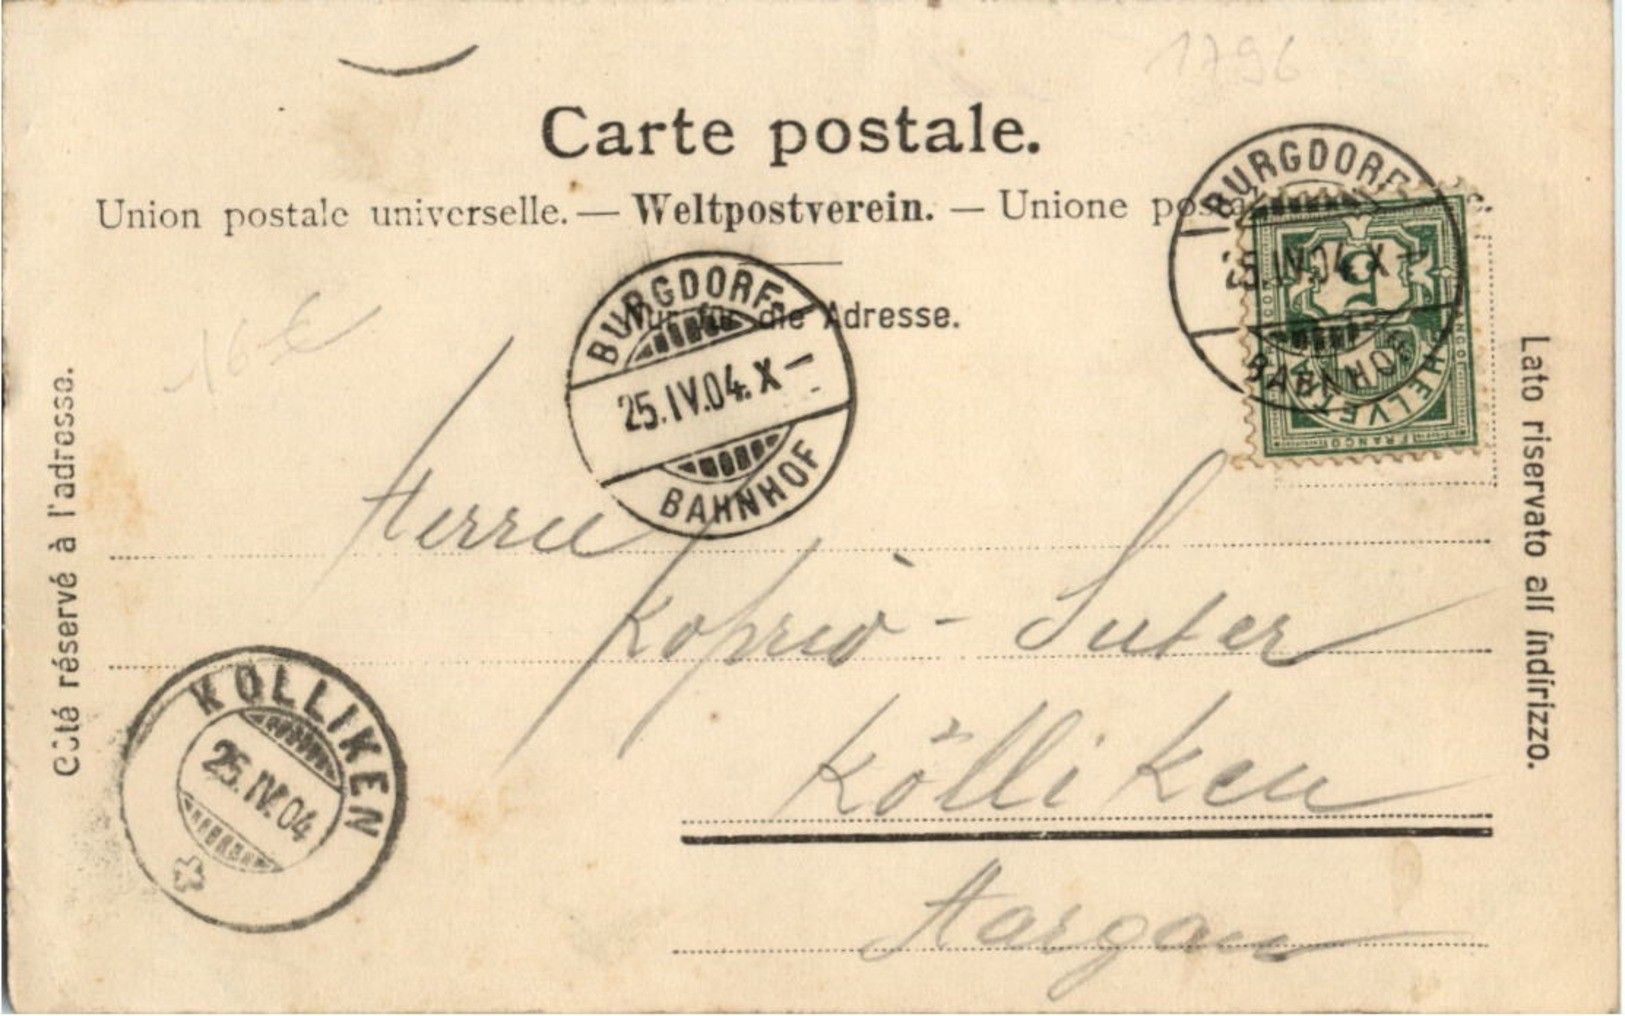 1796
Carte postale.
Union postale universelle. — Weltpostverein. — Unione
Nur für die Adresse.
BURGDORF
25.IV.04.X–
BAHNHOF
BURGDORF
25.IV.04.X–
BAHNHOF
5
HELVETIA
FRANCO
16 €
Côté réservé à l'adresse.
Lato riservato all' indirizzo.
Herrn
Koprio - Suter
Kölliken
Aargau
KÖLLIKEN
25.IV.04